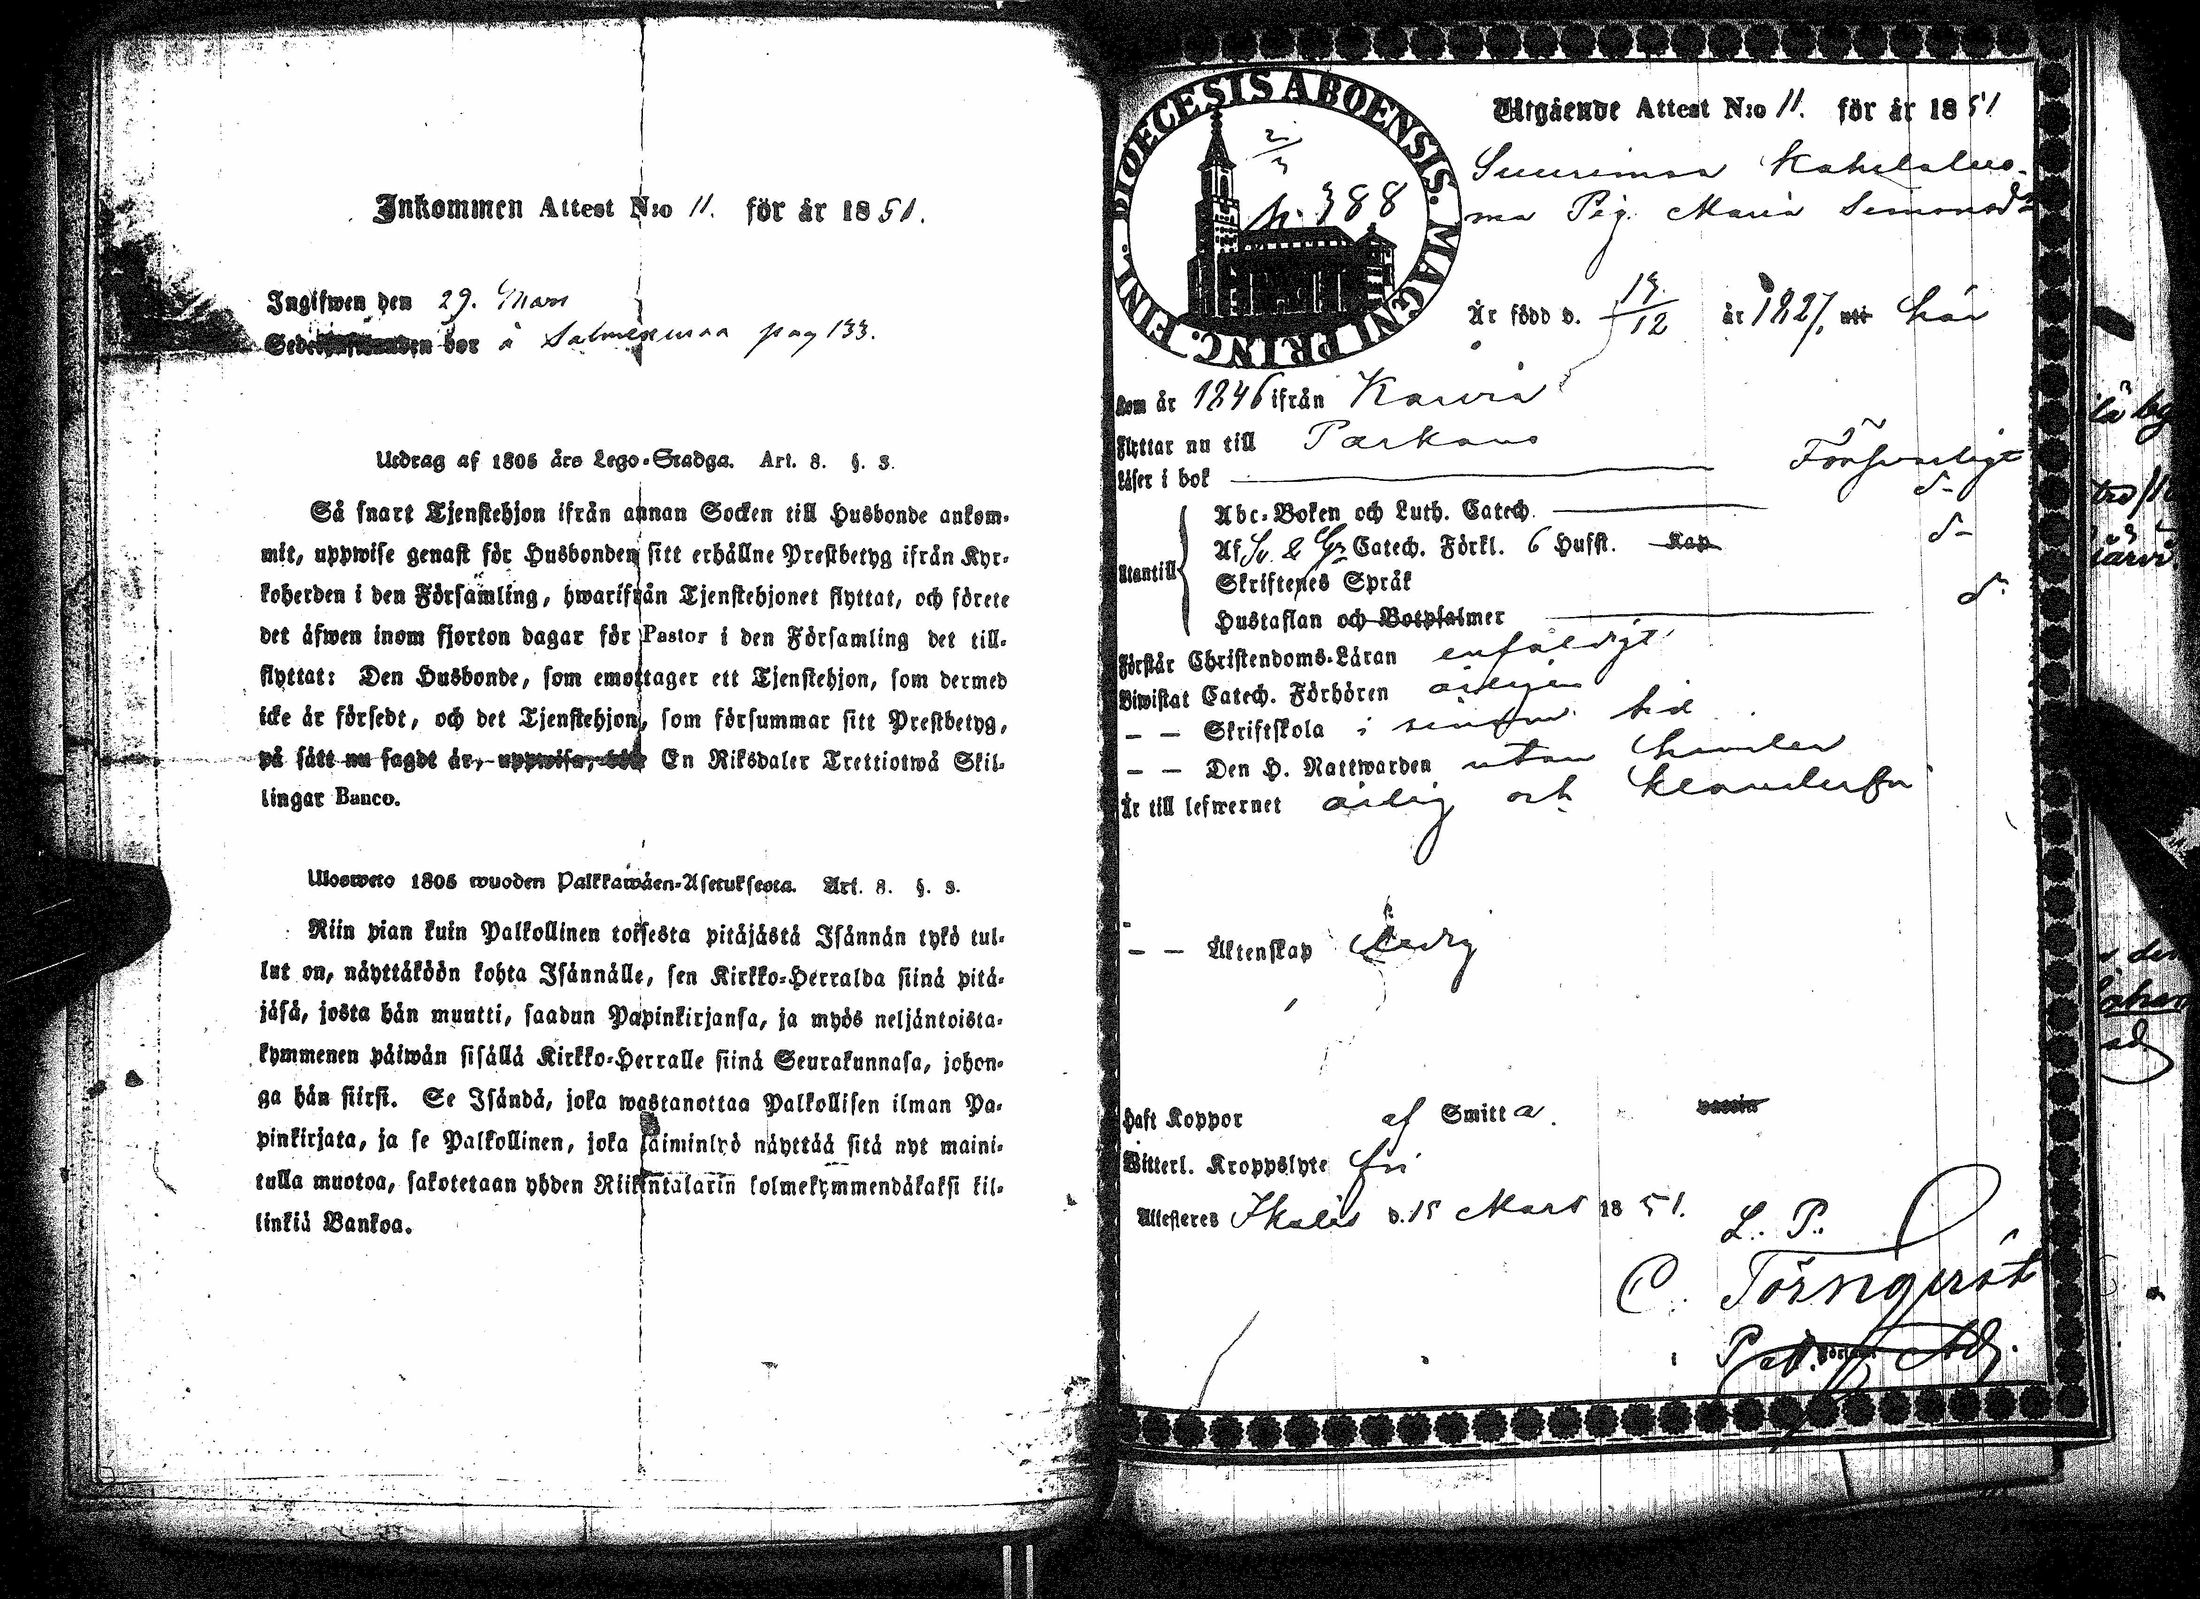 Inkommen Attest N:o 11. för år 1851.
Ingifwen den 29. Mars
bor å Salmenmaa pag 133.
Utdrag af 1805 års Lego-Stadga. Art. 8. §. 3.
Så snart Tjenstehjon ifrån annan Socken till Husbonde ankom-
mit, uppwise genast för Husbonden sitt erhållne Prestbetyg ifrån Kyr-
koherden i den Församling, hwarifrån Tjenstehjonet flyttat, och förete
det äfwen inom fjorton dagar för Pastor i den Församling det till-
flyttat: Den Husbonde, som emottager ett Tjenstehjon, som dermed
icke är försedt, och det Tjenstehjon, som försummar sitt Prestbetyg,
på sätt nu sagdt är, uppwisa, böte En Riksdaler Trettiotwå Skil-
lingar Banco.
Ulosweto 1805 wuoden Palkkawäen-Asetuksesta. Art. 8. §. 3.
Niin pian kuin Palkollinen toisesta pitäjästä Isännän tykö tul-
lut on, näyttäköön kohta Isännälle, sen Kirkko-Herralda siinä pitä-
jäsä, josta hän muutti, saadun Papinkirjansa, ja myös neljäntoista-
kymmenen päiwän sisällä Kirkko-Herralle siinä Seurakunnasa, johon-
ga hän siirsi. Se Isändä, joka wastanottaa Palkollisen ilman Pa-
pinkirjata, ja se Palkollinen, joka laiminlyö näyttää sitä nyt maini-
tulla muotoa, sakotetaan yhden Riikintalarin kolmekymmendäkaksi kil-
linkiä Bankoa.
DIOECESIS ABOENSIS. MAGNI PRINC. FINL.
2/3
p. 388
Utgående Attest N:o 11. för år 1851
Pig. Maria Simonsdr
Är född d. 19/12 år 1827, här
Kom år 1846 ifrån Karvia
Flyttar nu till Parkano
Läser i bok Försvarligt
Utantill
Abc-Boken och Luth. Catech. d-
Af Sv. & Gr Catech. Förkl. 6 Hufst. Kap d-
Skriftenes Språk
Hustaflan och Botpsalmer d-
Förstår Christendoms-Läran enfaldigt
Biwistat Catech. Förhören årligen
— — Skriftskola i sinom tid
— — Den H. Nattwarden utan hinder
Är till lefwernet ärlig och klanderfri
— — Äktenskap ledig
Haft Koppor af Smitta.
Witterl. Kroppslyte fri
Attesteres Ikalis d. 15 Mars 1851.
L. P.
C. Törnqvist